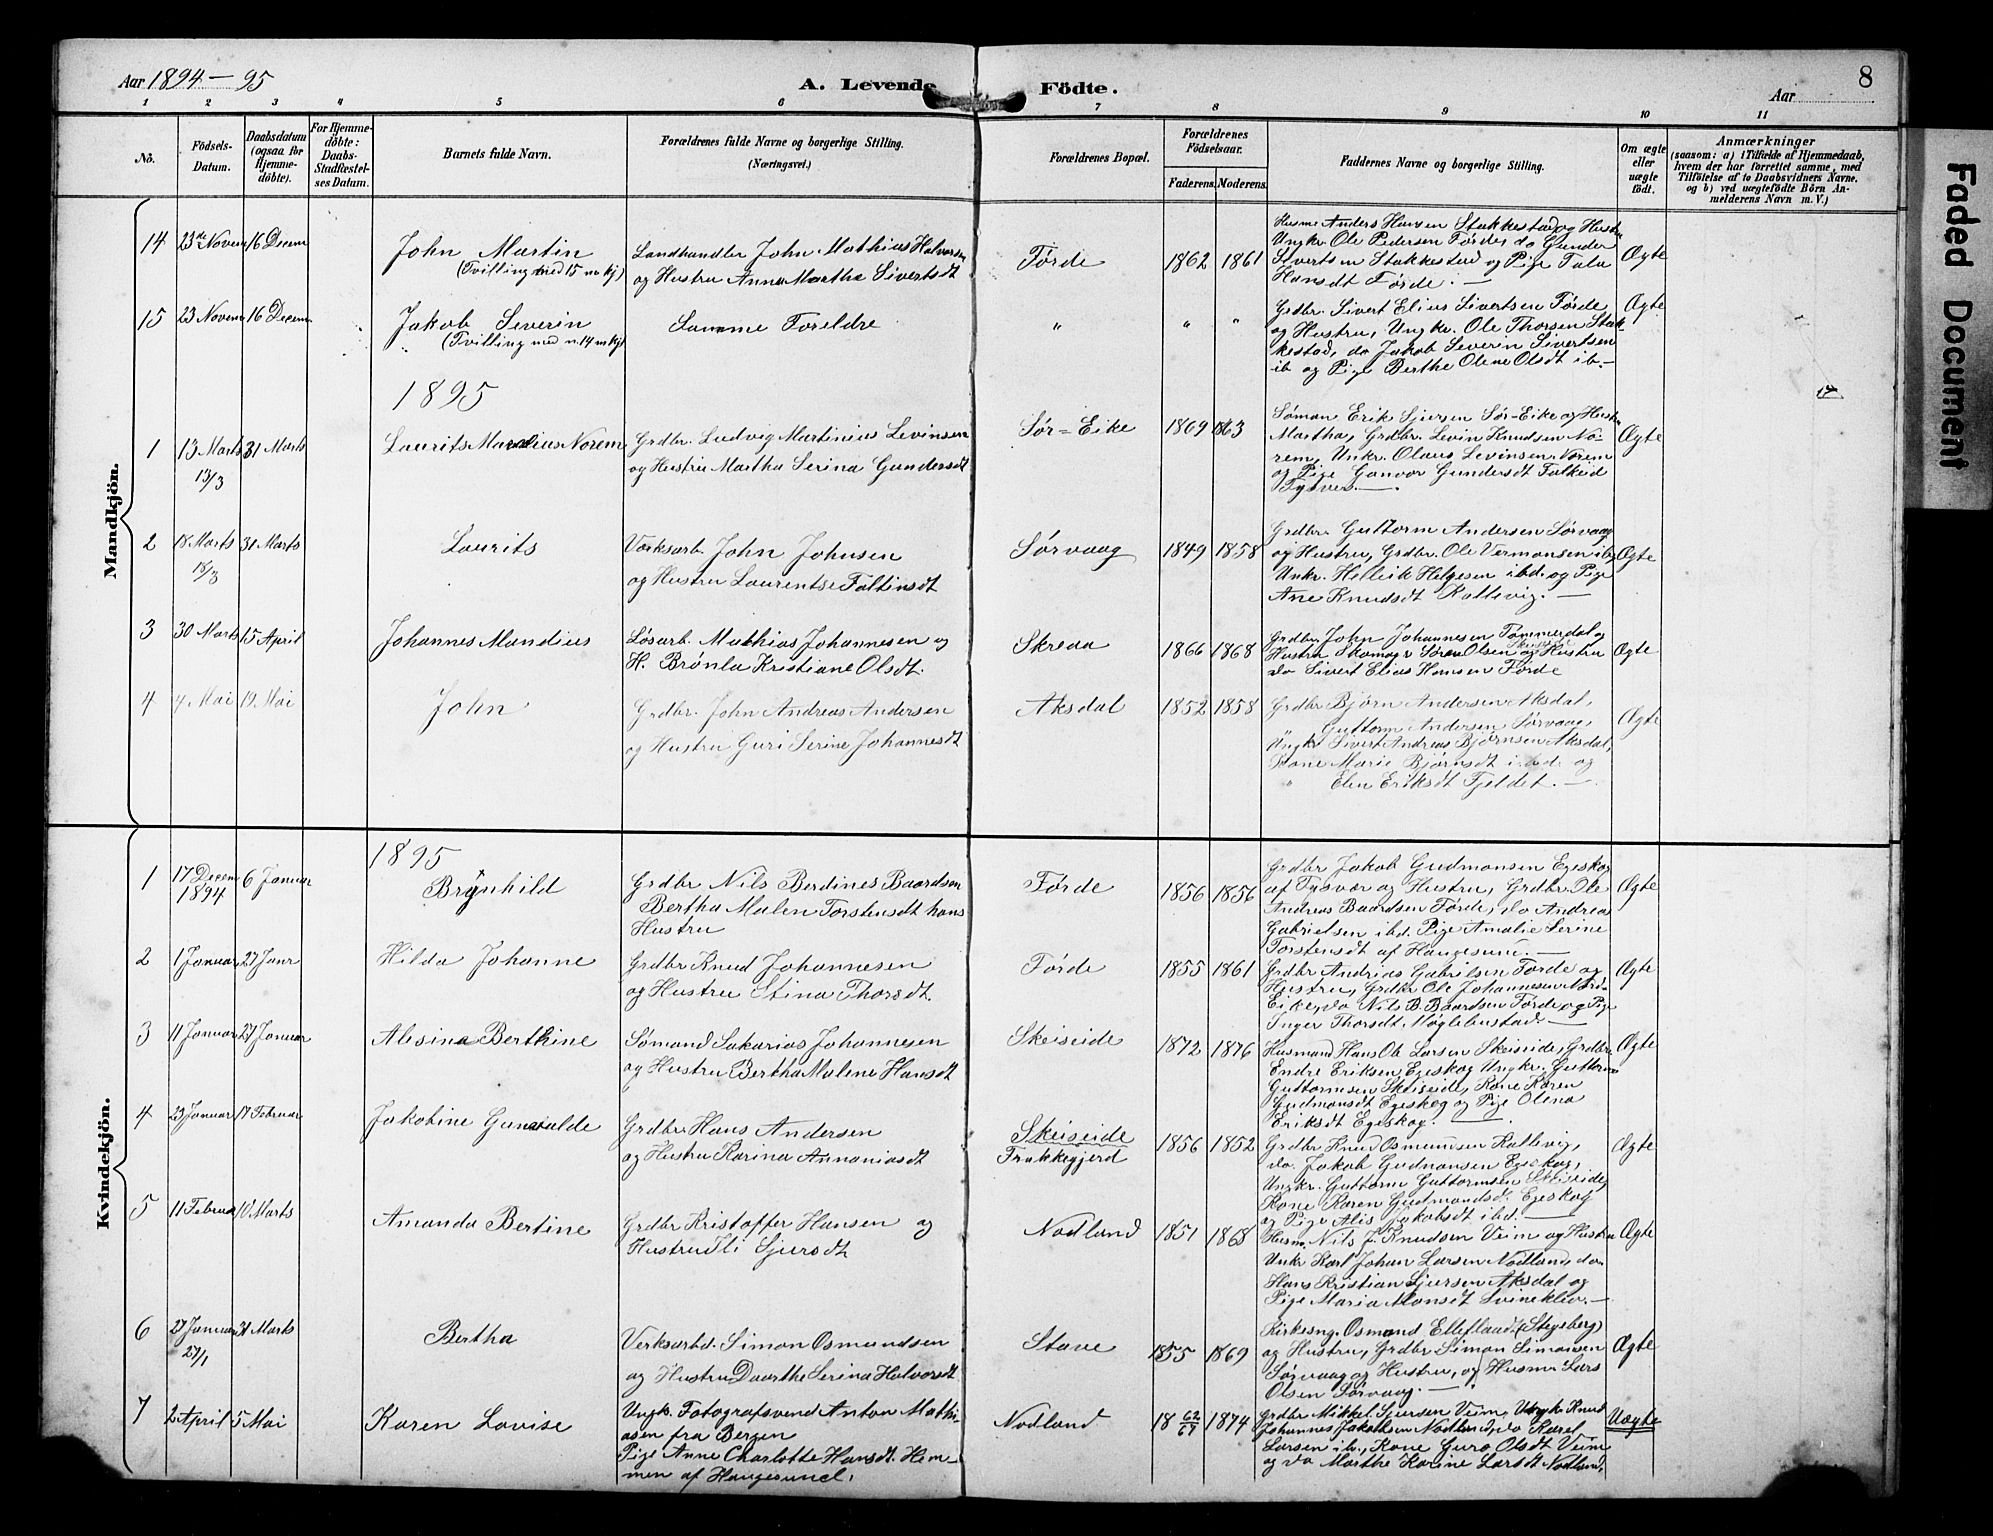 Aar 1894 – 95
A. Levende Födte.
8
Aar
1 2 3 4 5 6 7 8 9 10 11
No.
Födsels-Datum.
Daabsdatum (ogsaa for Hjemme-döbte).
For Hjemme-döbte: Daabs-Stadfæstel-ses Datum.
Barnets fulde Navn.
Forældrenes fulde Navne og borgerlige Stilling.
(Næringsvei.)
Forældrenes Bopæl.
Forældrenes Födselsaar.
Faderens. Moderens.
Faddernes Navne og borgerlige Stilling.
Om ægte eller uægte födt.
Anmærkninger
(saasom: a) i Tilfælde af Hjemmedaab,
hvem der har forrettet samme, med
Tilföielse af to Daabsvidners Navne,
og b) ved uægtefödte Börn An-
melderens Navn m. V.)
Faded Document
Mandkjön.
14 23de Novem 16 Decem
John Martin
(Tvilling med 15 mkj)
Landhandler John Mathias Halvorsen
og Hustru Anna Martha Sivertsdt
Førde 1862 1861
Husm Anders Hansen Stakkestad og Hustru
Ungkr Ole Pedersen Førde, do Gunder
Sivertsen Stakkestad og Pige Tala
Hansdt Førde. —
Ægte
15 23 Novem 16 Decem
Jakob Severin
(Tvilling med n. 14 mkj)
Samme Foreldre
" " "
Grdbr. Sivert Elias Sivertsen Førde
og Hustru, Ungkr. Ole Thorsen Stak
kestad, do Jakob Severin Sivertsen
ib og Pige Berthe Olene Olsdt ib. —
Ægte
1895
1 13 Marts 31 Marts
13/3
Laurits Mandius Norem
Grdbr. Ludvig Martinius Levinsen
og Hustru Martha Serina Gundersdt
Sør-Eike 1869 1863
Søman Erik Sjursen Sør-Eike og Hustru
Martha, Grdbr. Levin Knudsen No-
rem, Unkr. Olaus Levinsen Norem
og Pige Gunvor Gundersdt Falkeid
Tysvær. —
Ægte
2 18 Marts 31 Marts
18/3
Laurits
Værksarb. John Johnsen
og Hustru Laurentse Faltinsdt
Sørvaag 1849 1858
Grdbr Guttorm Andersen Sørvaag
og Hustru, Grdbr. Ole Vermonsen ib,
Unkr. Hellik Helgesen ibd. og Pige
Ane Knudsdt Rallevig. —
Ægte
3 30 Marts 15 April
Johannes Mandius
Løsarb. Mathias Johannesen og
H. Brønla Kristiane Olsdt.
Skreaa 1866 1868
Grdbr John Johannesen Tømmerdal og
Hustru Skomagr Søren Olsen og Hustru
do Sivert Elias Hansen Førde
Ægte
4 4 Mai 19 Mai
John
Grdbr. John Andreas Andersen
og Hustru Guri Serine Johannesdt
Aksdal 1852 1858
Grdbr Bjørn Andersen Aksdal,
" Guttorm Andersen Sørvaag,
Ungkr Sivert Andreas Bjørnsen Aksdal,
Kone Marie Bjørnsdt ibd og
" Elen Eriksdt Fjeldet. —
Ægte
Kvindekjön.
1895
1 17 Decem 6 Januar
1894
Brynhild
Grdbr Nils Berdines Baardsen
Bertha Malen Torstensdt hans
Hustru
Førde 1856 1856
Grdbr Jakob Gudmonsen Egeskog
af Tysvær og Hustru, Grdbr Ole
Andreas Baardsen Førde, do Andreas
Gabrielsen ibd. Pige Amalie Serine
Torstensdt af Haugesund. —
Ægte
2 1 Januar 27 Janr
Hilda Johanne
Grdbr Knud Johannesen
og Hustru Stina Thorsdt.
Førde 1855 1861
Grdbr Andrias Gabrilsen Førde og
Hustru, Grdbr Ole Johannesen Nord-
Eike, do Nils B. Baardsen Førde og Pige
Inger Thorsdt Møglebustad. —
Ægte
3 11 Januar 27 Januar
Alesina Berthine
Sømand Sakarias Johannesen
og Hustru Bertha Malene Hansdt
Skeiseide 1872 1876
Husmand Hans Ole Larsen Skeiseide, Grdbr.
Endre Eriksen Egeskog Ungkr. Guttorm
Guttormsen Skeiseide, Kone Karen
Gudmonsdt Egeskog og Pige Olena
Eriksdt Egeskog. —
Ægte
4 23 Januar 17 Februar
Jakobine Gunvalde
Grdbr Hans Andersen
og Hustru Karina Annaniasdt
Skeiseide
Frakkegjerd
1856 1852
Grdbr Knud Osmundsen Rallevig,
do. Jakob Gudmonsen Egeskog,
Ungkr. Guttorm Guttormsen Skeiseide
Kone Karen Gudmonsdt. Egeskog
og Pige Alis Jakobsdt ibd. —
Ægte
5 11 Februar 10 Marts
Amanda Bertine
Grdbr Kristoffer Hansen og
Hustru Ili Sjursdt
Nodland 1851 1868
Husm. Nils J. Knudsen Veim og Hustru
Unkr Karl Johan Larsen Nodland, do
Hans Kristian Sjursen Aksdal og
Pige Maria Monsdt Svineklev. —
Ægte
6 27 Januar 31 Marts
27/1
Bertha
Verksarbd. Simon Osmundsen
og Hustru Daarthe Serina Halvorsdt
Stave 1855 1869
Kirkesng. Osmond Elleflaad (Stegsberg)
og Hustru, Grdbr Simon Simonsen
Sørvaag og Hustru, og Husmn Lars
Olsen Sørvaag. —
Ægte
7 2 April 5 Mai
Karen Lovise
Ungk. Fotografsvend Anton Mathi-
asen fra Bergen
Pige Anne Charlotte Hansdt. Hem-
men af Haugesund,
Nodland 18 62/67 1874
Grdbr Mikkel Sjursen Veim, Ungk Knud
Johannes Jakobsen Nodland, do Karel
Larsen ib, Kone Guro Olsdt Veim
og do Marthe Karine Larsdt Nodland,
Uægte